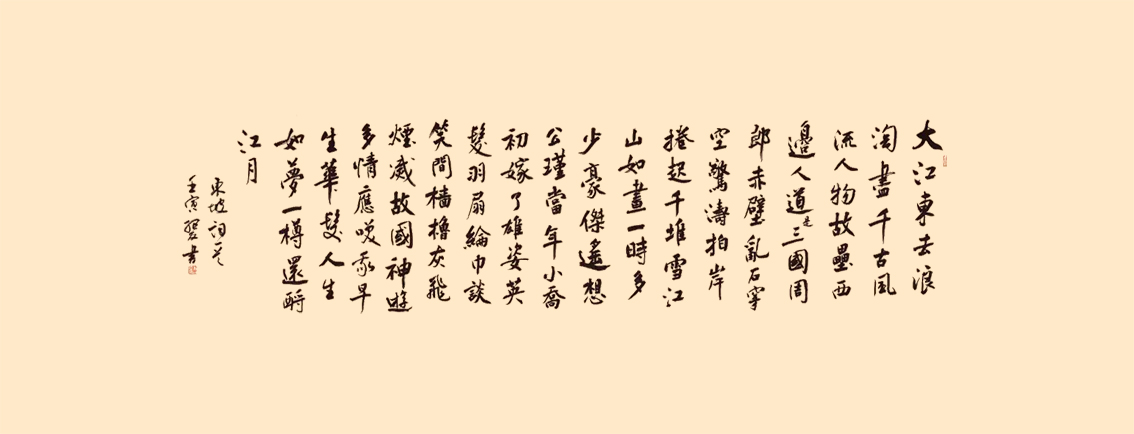 大江東去浪
淘盡千古風
流人物故壘西
邊人道是三國周
郎赤壁亂石穿
空驚濤拍岸
捲起千堆雪江
山如畫一時多
少豪傑遙想
公瑾當年小喬
初嫁了雄姿英
髮羽扇綸巾談
笑間檣櫓灰飛
煙滅故國神遊
多情應笑我早
生華髮人生
如夢一樽還酹
江月
東坡詞
壬寅書